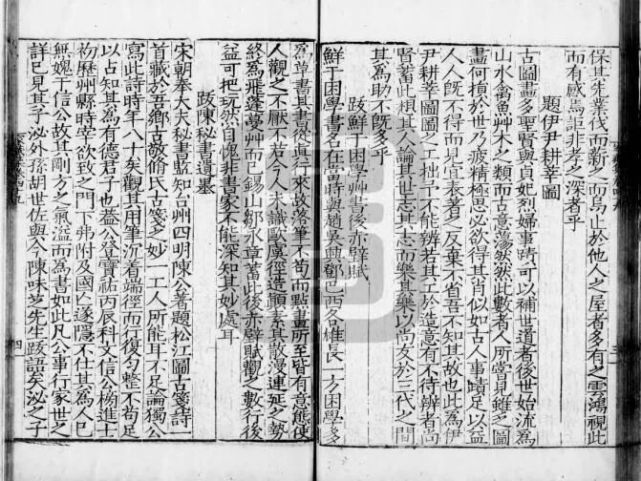 保其先業伐而新之而烏止於他人之屋者多有之雲鴻視此
而有感焉詎非孝之深者乎
題伊尹耕莘圖
古圖畫多聖賢與貞妃烈婦事蹟可以補世道者後世始流為
山水禽魚艸木之類而古意蕩然然此數者人所常見雖乏圖
畫何損於世乃疲精極思必欲得其肖似如古人事蹟足以益
人人既不得而見宜表著之反棄不省吾不知其故也此為伊
尹耕莘圖圖之工拙予不能辨若其工於造意有不待辨者尚
賢蓄此類其人論其世志其志而樂其樂以尚友於三代之間
其為助不既多乎
跋鮮于困學艸書後赤壁賦
鮮于困學書名在當時與趙吳興鄧巴西各雄長一方困學多
為草書其書從真行來故落筆不苟而點畫所至皆有意態使
人觀之不厭不若今人未識歐虞徑造顛素其散漫連延之勢
終為飛蓬蔓艸而已錫山鄒永章蓄此後赤壁賦觀之數行後
益可把玩然自愧非書家不能深知其妙處耳
跋陳秘書遺墨
宋朝奉大夫秘書監知台州四明陳公著題松江圖古箋詩一
首藏於吾鄉古敬脩氏古箋之妙一工人所能耳不足論獨公
寫此詩時年八十矣觀其用筆沉着端徑而行復勻整不苟足
以占知其為有德君子也蓋公登寶祐丙辰科文信公榜進士
初歷州縣時宰欲致之門下弗附及國亡遂隱不仕其為人已
無媿于信公故其剛方之氣溢而為書如此凡公事行家世之
詳已見其子泌外孫胡世佐與今陳味芝先生跋語矣泌之子
四